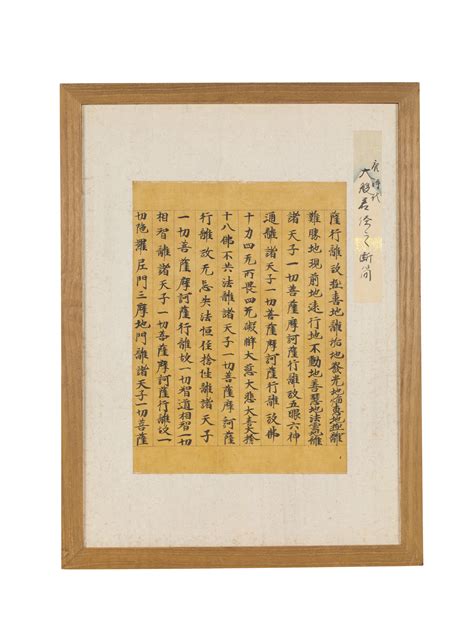 大般若経之断簡
薩行離故極喜地離垢地發光地焰慧地極
難勝地現前地遠行地不動地善慧地法雲地離
諸天子一切菩薩摩訶薩行離故五眼六神
通離諸天子一切菩薩摩訶薩行離故佛
十力四无所畏四无礙解大慈大悲大喜大捨
十八佛不共法離諸天子一切菩薩摩訶薩
行離故无忘失法恒住捨性離諸天子
一切菩薩摩訶薩行離故一切智道相智一切
相智離諸天子一切菩薩摩訶薩行離故一
切陀羅尼門三摩地門離諸天子一切菩薩